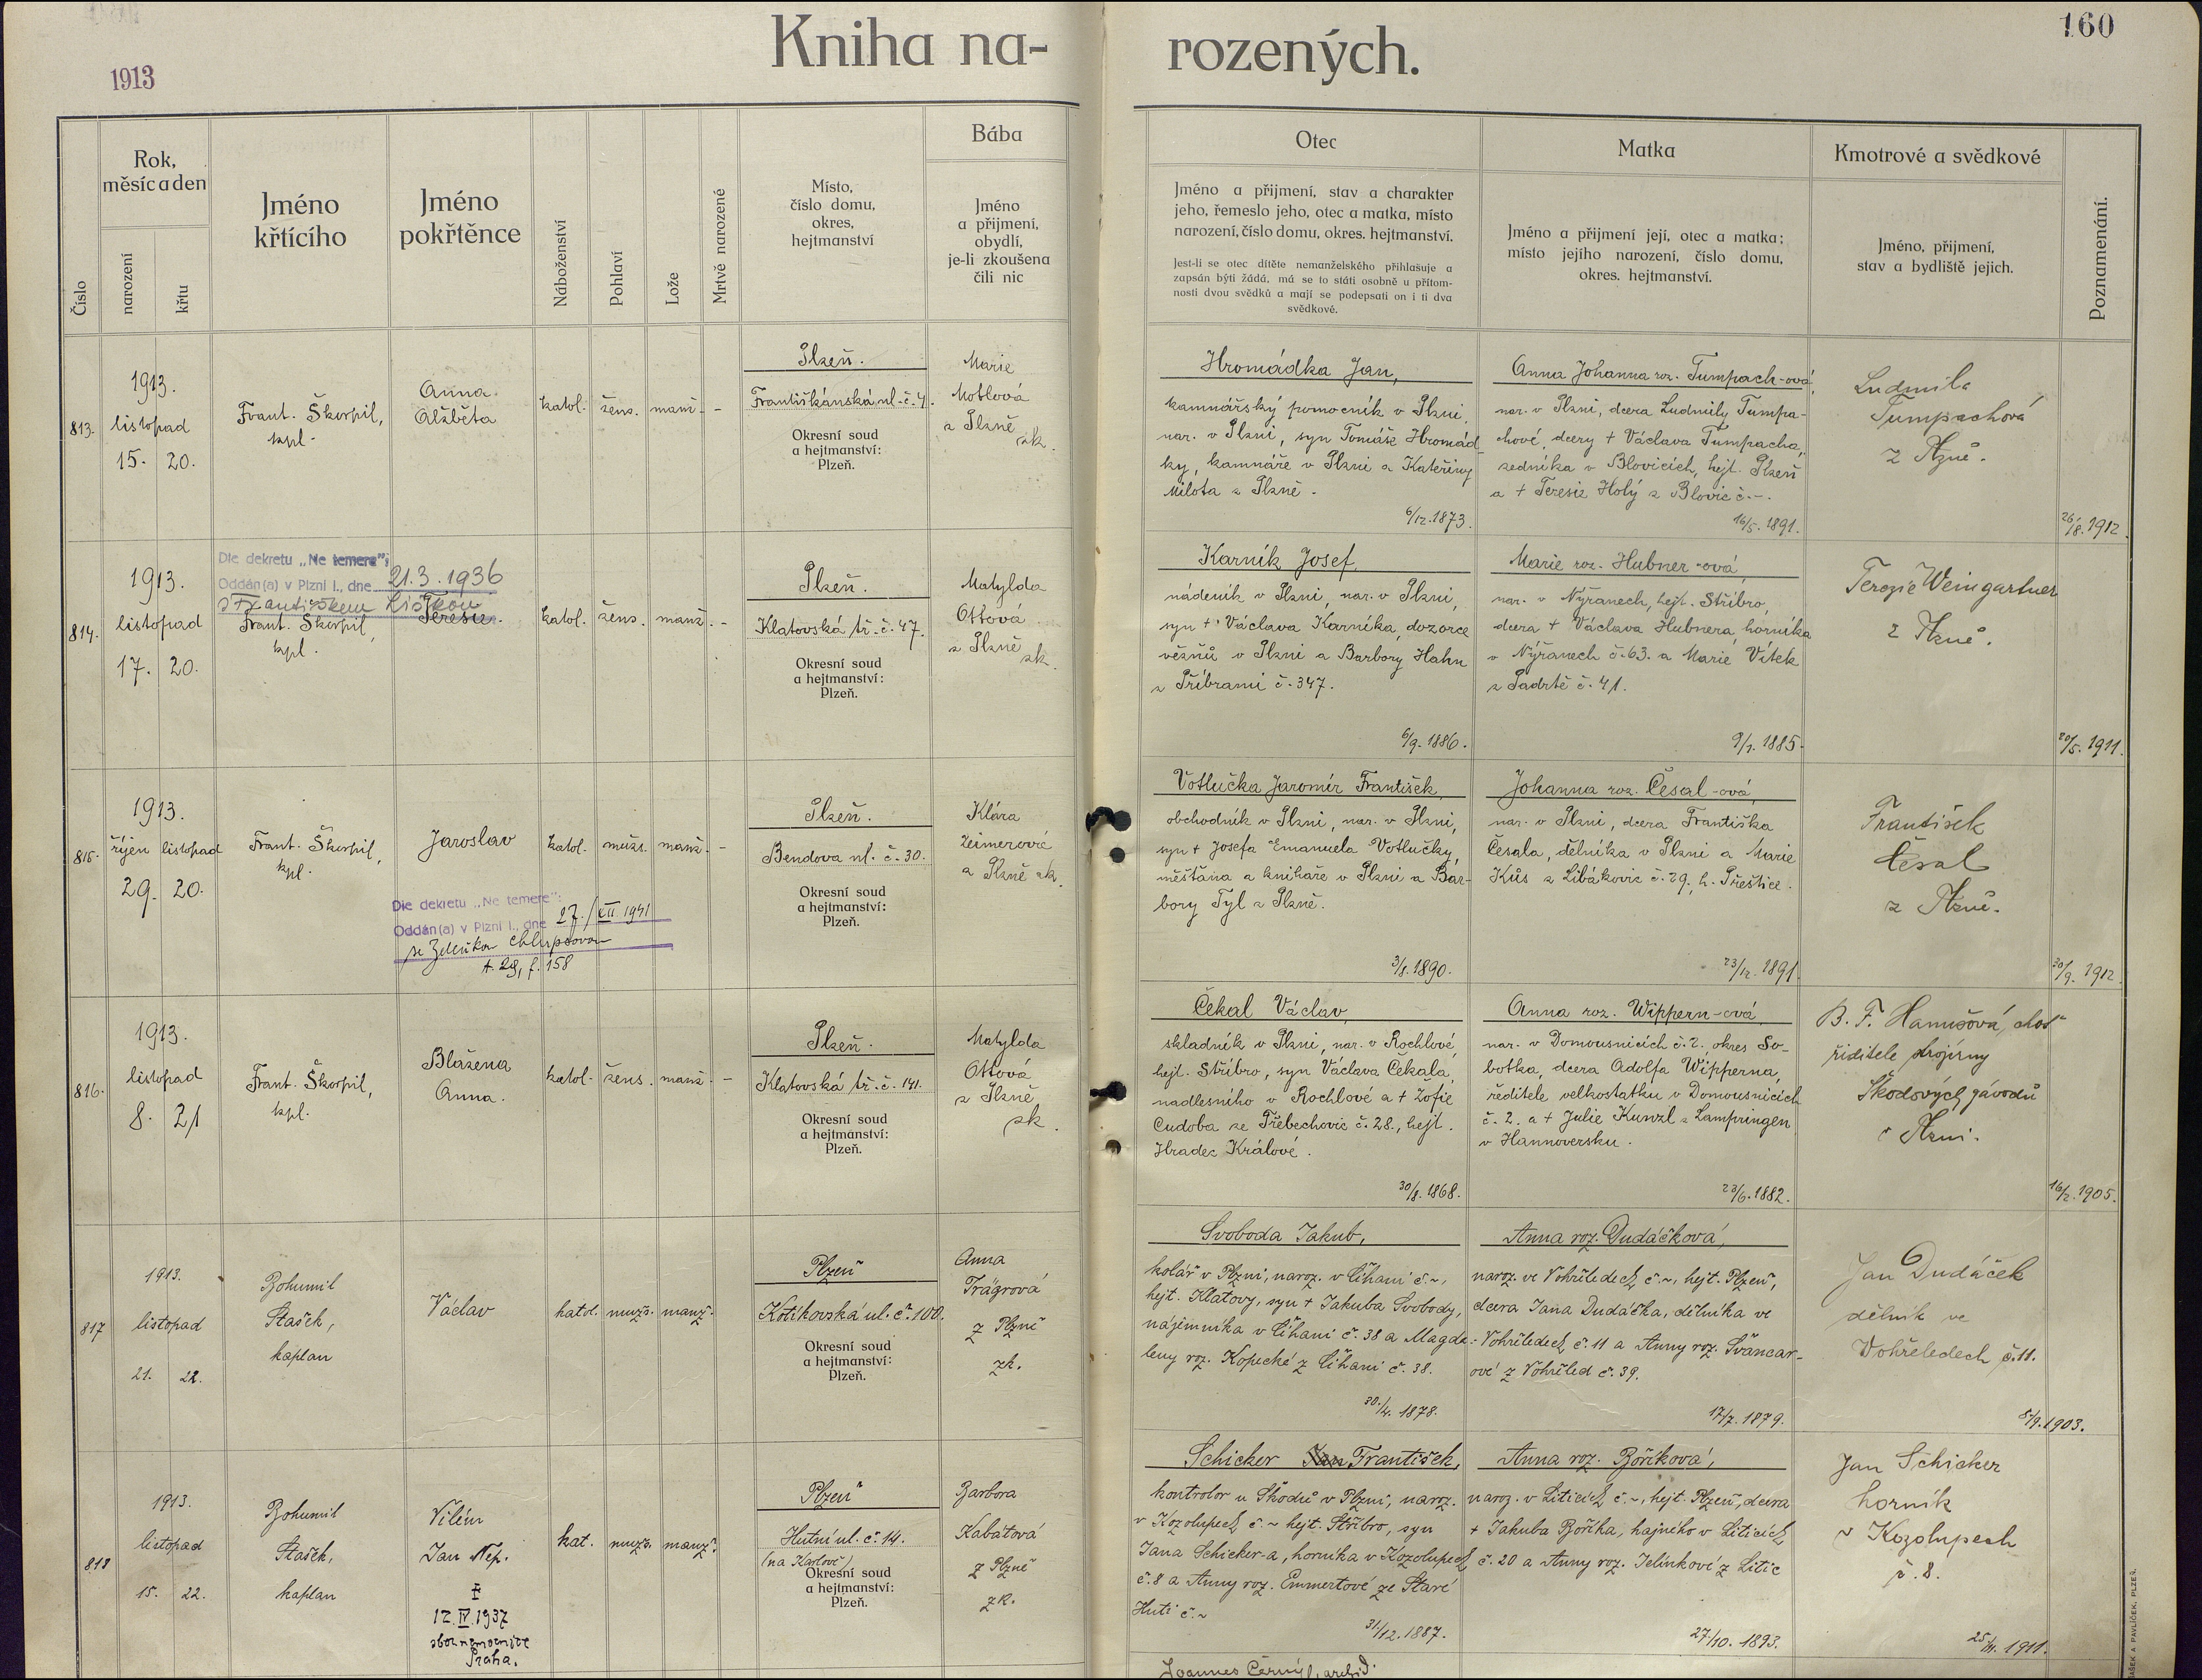 Kniha na-
rozených.
160
1913
Číslo
Rok,
měsíc a den
narození
křtu
Jméno
křtícího
Jméno
pokřtěnce
Náboženství
Pohlaví
Lože
Mrtvě narozené
Místo,
číslo domu,
okres,
hejtmanství
Bába
Jméno
a přijmení,
obydlí,
je-li zkoušena
čili nic
Otec
Jméno a přijmení, stav a charakter
jeho, řemeslo jeho, otec a matka, místo
narození, číslo domu, okres. hejtmanství.
Jest-li se otec dítěte nemanželského přihlašuje a
zapsán býti žádá, má se to státi osobně u přítom-
nosti dvou svědků a mají se podepsati on i ti dva
svědkové.
Matka
Jméno a přijmení její, otec a matka;
místo jejího narození, číslo domu,
okres. hejtmanství.
Kmotrové a svědkové
Jméno, přijmení,
stav a bydliště jejich.
Poznamenání.
813.
1913.
listopad
15. 20.
Frant. Škorpil,
kpl.
Anna
Alžběta
katol.
žens.
manž.
-
Plzeň.
Františkánská ul. č. 4.
Okresní soud
a hejtmanství:
Plzeň.
Marie
Motlová
z Plzně
zk.
Hromádka Jan,
kamnářský pomocník v Plzni,
nar. v Plzni, syn Tomáše Hromád-
ky, kamnáře v Plzni a Kateřiny
Milota z Plzně.
6/12. 1873.
Anna Johanna roz. Tumpach-ová,
nar. v Plzni, dcera Ludmily Tumpa-
chové, dcery + Václava Tumpacha,
zedníka v Blovicích, hejt. Plzeň
a + Teresie Holý z Blovic č. -.
16/5. 1891.
Ludmila
Tumpachová
z Plzně.
26/8. 1912.
814.
1913.
listopad
17. 20.
Dle dekretu „Ne temere":
Oddán(a) v Plzni I., dne 21.3.1936
s Františkem Liškou
Frant. Škorpil,
kpl.
Teresie.
katol.
žens.
manž.
-
Plzeň.
Klatovská tř. č. 47.
Okresní soud
a hejtmanství:
Plzeň.
Matylda
Ottová
z Plzně
zk.
Karník Josef,
nádeník v Plzni, nar. v Plzni,
syn + Václava Karníka, dozorce
vězňů v Plzni a Barbory Hahn
z Příbrami č. 347.
6/9. 1886.
Marie roz. Hubner-ová,
nar. v Nýřanech, hejt. Stříbro,
dcera + Václava Hubnera, horníka
v Nýřanech č. 63. a Marie Vítek
z Padrtě č. 41.
9/1. 1885.
Terezie Weingartner
z Plzně.
20/5. 1911.
815.
1913.
říjen listopad
29. 20.
Frant. Škorpil,
kpl.
Jaroslav
Dle dekretu „Ne temere":
Oddán(a) v Plzni I., dne 27./XII. 1941
se Zdeňkou Chlupsovou
t. 29, f. 158
katol.
mužs.
manž.
-
Plzeň.
Bendova ul. č. 30.
Okresní soud
a hejtmanství:
Plzeň.
Klára
z Plzně zk.
Votlučka Jaromír František,
obchodník v Plzni, nar. v Plzni,
syn + Josefa Emanuela Votlučky,
měšťana a knihaře v Plzni a Bar-
bory Tyl z Plzně.
3/8. 1890.
Johanna roz. Česal-ová,
nar. v Plzni, dcera Františka
Česala, dělníka v Plzni a Marie
Kůs z Libákovic č. 29., h. Přeštice.
23/12. 1891.
František
Česal
z Plzně.
30/9. 1912.
816.
1913.
listopad
8. 21
Frant. Škorpil,
kpl.
Blažena
Anna.
katol.
žens.
manž.
-
Plzeň.
Klatovská tř. č. 141.
Okresní soud
a hejtmanství:
Plzeň.
Matylda
Ottová
z Plzně,
zk.
Čekal Václav,
skladník v Plzni, nar. v Rochlové,
hejt. Stříbro, syn Václava Čekala,
nadlesního v Rochlové a + Žofie
Cudoba ze Třebechovic č. 28., hejt.
Hradec Králové.
30/8. 1868.
Anna roz. Wippern-ová,
nar. v Domousnicích č. 2. okres So-
botka, dcera Adolfa Wipperna,
ředitele velkostatku v Domousnicích
č. 2. a + Julie Kunzl z Lampringen
v Hannoversku.
23/6. 1882.
B. F. Hanušová, choť
řiditele strojírny
Škodových závodů
v Plzni.
16/2. 1905.
817
1913.
listopad
21. 22.
Bohumil
Stašek,
kaplan
Václav
katol.
mužs.
manž.
Plzeň
Kotíkovská ul. č. 100.
Okresní soud
a hejtmanství:
Plzeň.
Anna
Trägrová
z Plzně
zk.
Svoboda Jakub,
kolář v Plzni, naroz. v Číhani č. ~,
hejt. Klatovy, syn + Jakuba Svobody,
nájemníka v Číhani č. 38 a Magda-
leny roz. Kopecké z Číhani č. 38.
30./4. 1878.
Anna roz. Dudáčková,
naroz. ve Vohřeledech č. ~, hejt. Plzeň,
dcera Jana Dudáčka, dělníka ve
Vohřeledech č. 11 a Anny roz. Švancar-
ové z Vohřeled č. 39.
17/7. 1879.
Jan Dudáček
dělník ve
Vohřeledech č. 11.
5/9. 1903.
818
1913.
listopad
15. 22.
Bohumil
Stašek,
kaplan
Vilém
Jan Nep.
‡
12. IV. 1937
Praha.
kat.
mužs.
manž.
Plzeň
Hutní ul. č. 14.
(na Karlově)
Okresní soud
a hejtmanství:
Plzeň.
Barbora
Kabátová
z Plzně
zk.
Schicker Jan František,
kontrolor u Škodů v Plzni, naroz.
v Kozolupech č. ~ hejt. Stříbro, syn
Jana Schicker-a, horníka v Kozolupech
č. 8 a Anny roz. Emmertové ze Staré
Huti č. ~
31/12. 1887.
Anna roz. Boříková,
naroz. v Liticích č. ~, hejt. Plzeň, dcera
+ Jakuba Boříka, hajného v Liticích
č. 20 a Anny roz. Jelínkové z Litic
27./10. 1893.
Jan Schicker
horník
v Kozolupech
č. 8.
1911.
Joannes Černý, archid.
PAVLÍČEK, PLZEŇ.